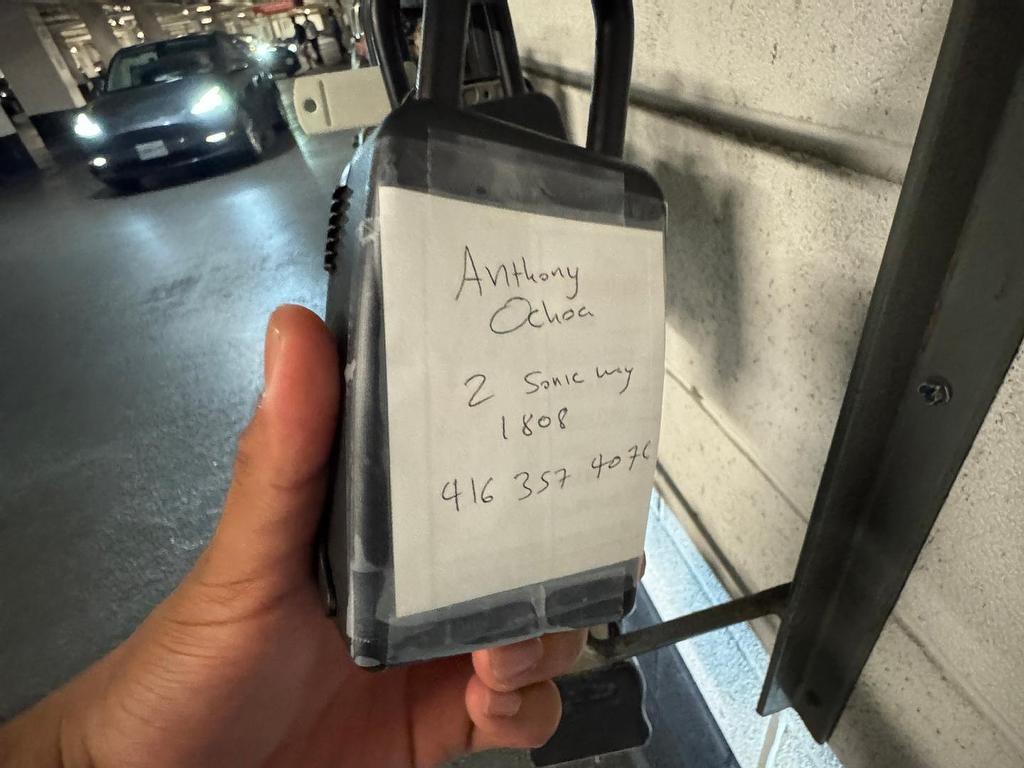 Anthony
Ochoa
2 Sonic way
1808
416 357